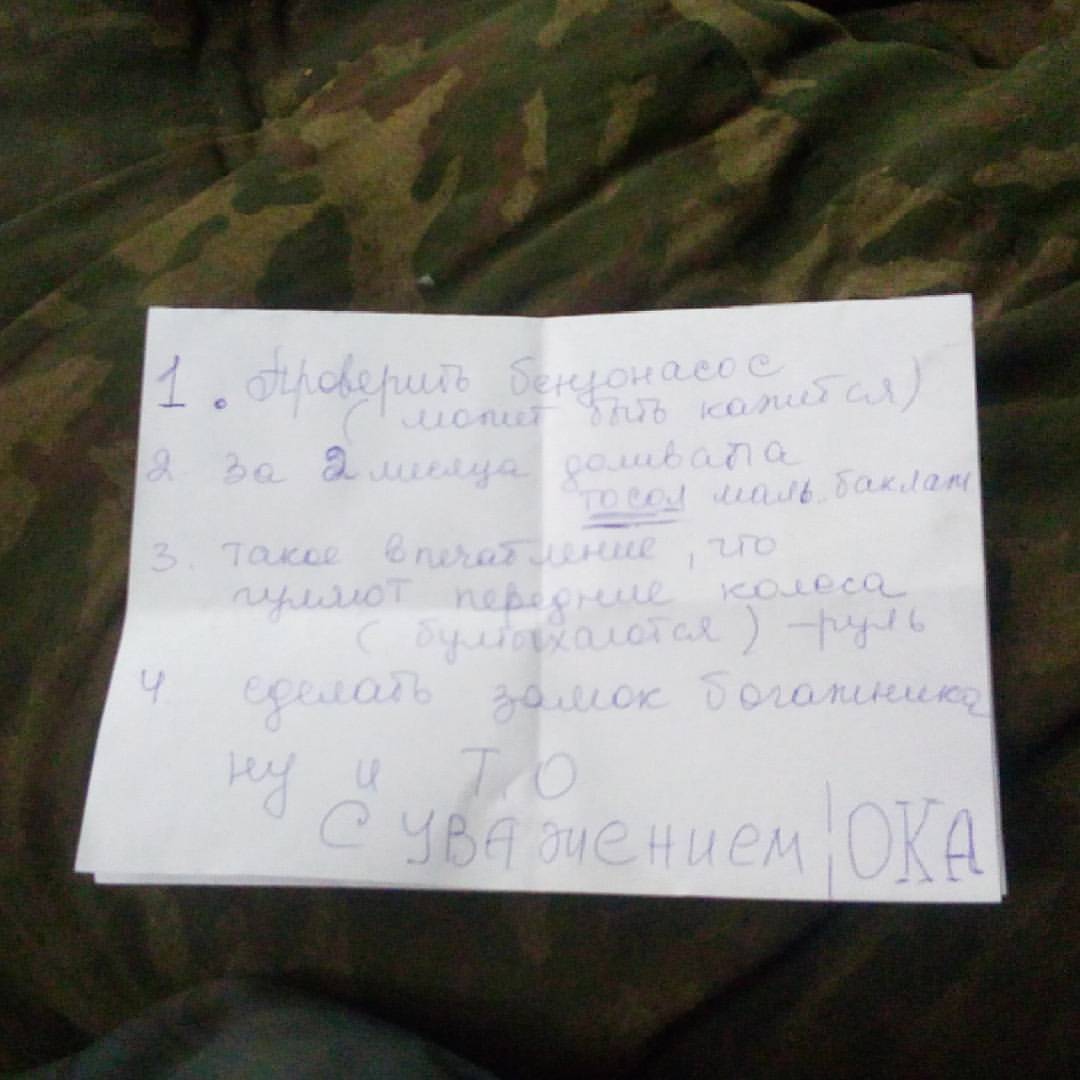 1. Проверить бензонасос
(может быть кажится)
2 За 2 месяца доливала
тосол маль. баклаж
3. такое впечатление, что
гуляют передние колоса
(булtыхаются) - руль
4 сделать замок богажника
ну и Т.О
С УВАжЕНиЕм ОКА